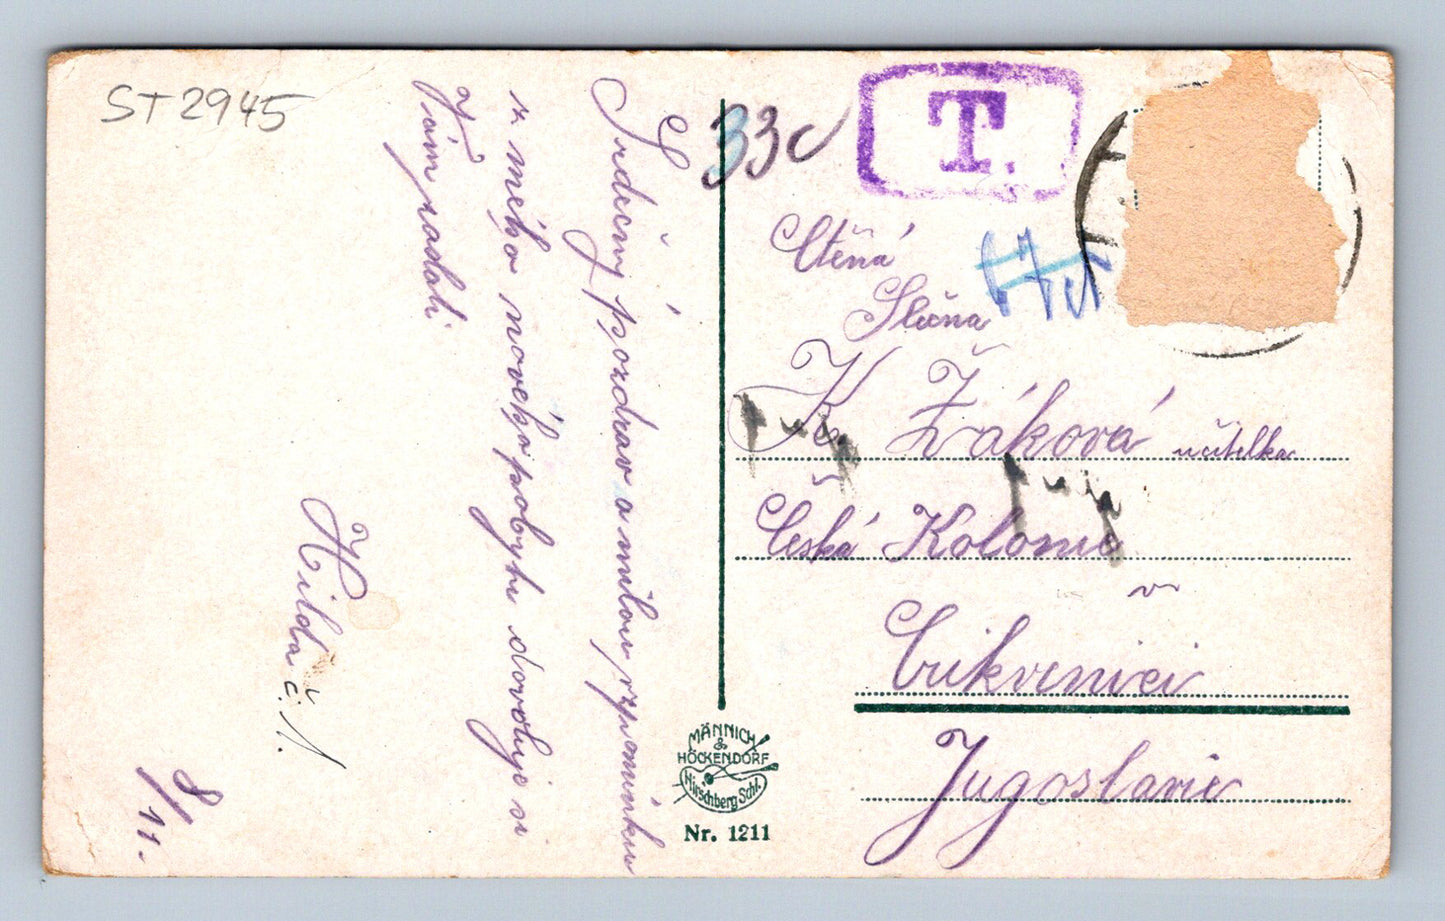 ST2945
33c
T.
Srdečný pozdrav a milou vzpomínku
z mého nového pobytu dovoluje si
Vám zaslati
Hilda č. N.
8/11.
Ctěná
Slečna
K. Žáková učitelka
Česká Kolonie
v
Cirkvenici
Jugoslavie
MÄNNICH
&
HÖCKENDORF
Hirschberg Schl.
Nr. 1211